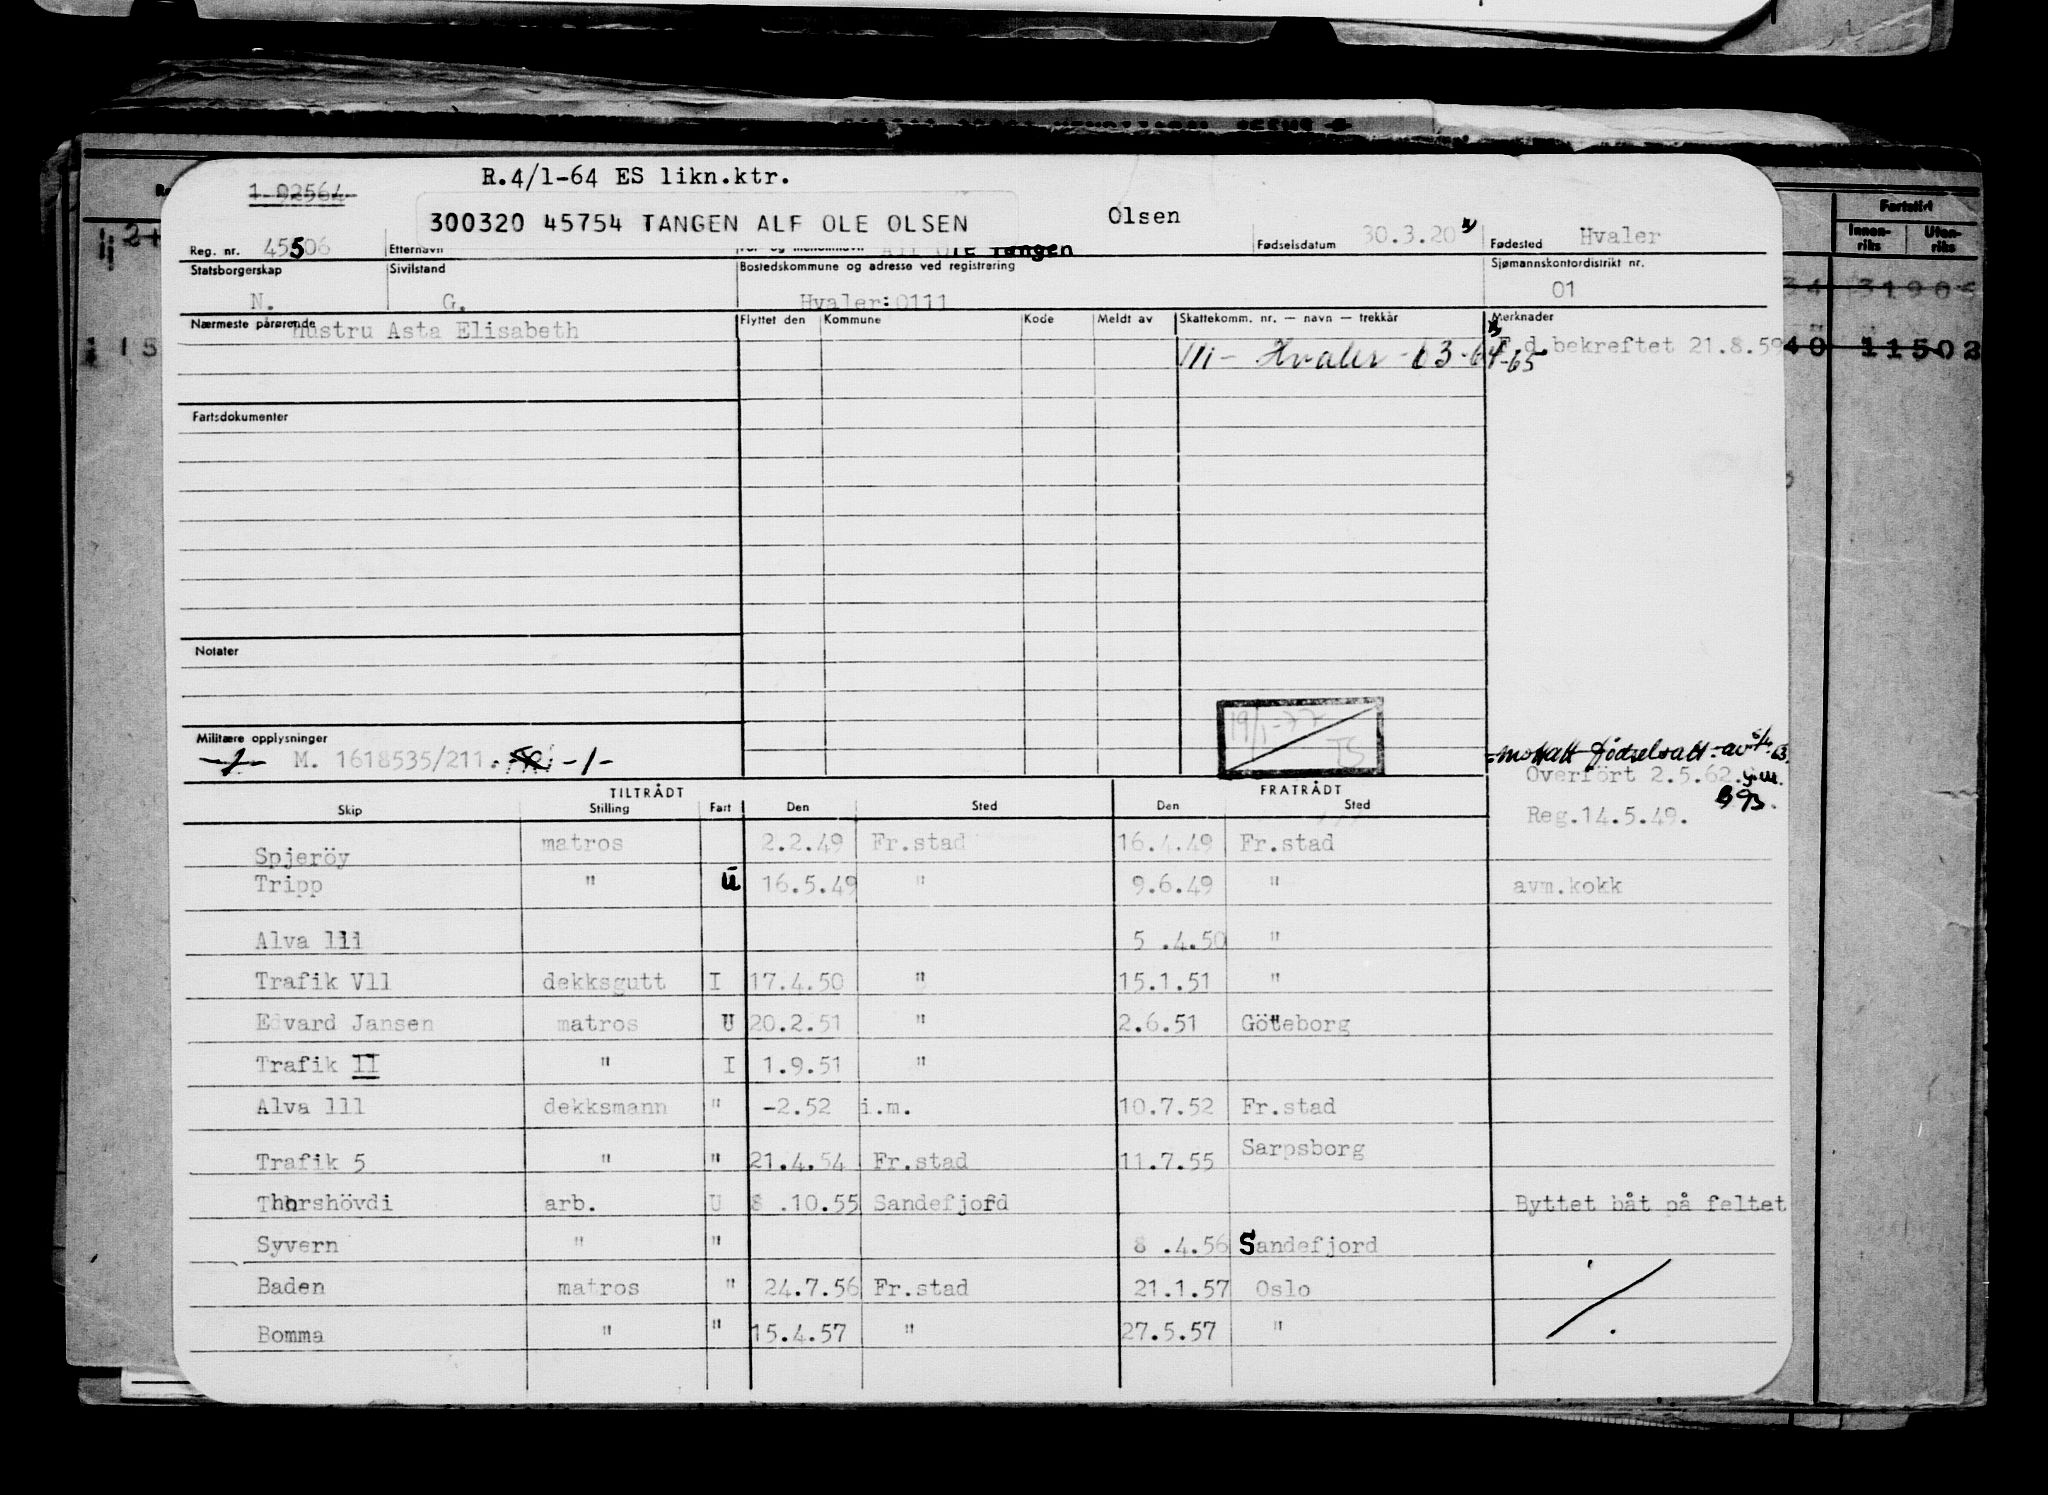 R.4/1-64 ES likn.ktr.
1-92564
300320 45754 TANGEN ALF OLE OLSEN
Olsen
Reg. nr. 45506
Etternavn
Alf Ole Tangen
Fødselsdatum 30.3.20
Fødested Hvaler
Statsborgerskap N.
Sivilstand G.
Bostedskommune og adresse ved registrering
Hvaler:0111
Sjømannskontordistrikt nr.
01
Nærmeste pårørende
Hustru Asta Elisabeth
Flyttet den Kommune Kode Meldt av Skattekomm. nr. — navn — trekkår Merknader
111- Hvaler -63-64-65
F.d. bekreftet 21.8.59
Fartstid
Innen-riks Uten-riks
34 31906
40 11503
Fartsdokumenter
Notater
19/1-77
TS
Militære opplysninger
M. 1618535/211. -1-
Mottatt fødselsatt. av
Overført 2.5.62.
Reg.14.5.49.
TILTRÅDT FRATRÅDT
Skip Stilling Fart Den Sted Den Sted
Spjeröy matros 2.2.49 Fr.stad 16.4.49 Fr.stad
Tripp " U 16.5.49 " 9.6.49 " avm.kokk
Alva 111 5 .4.50 "
Trafik V11 dekksgutt I 17.4.50 " 15.1.51 "
Edvard Jansen matros U 20.2.51 " 2.6.51 Göteborg
Trafik II " I 1.9.51 "
Alva 111 dekksmann " -2.52 i.m. 10.7.52 Fr.stad
Trafik 5 " " 21.4.54 Fr.stad 11.7.55 Sarpsborg
Thorshövdi arb. U 8 .10.55 Sandefjord Byttet båt på feltet
Syvern " " 8 .4.56 Sandefjord
Baden matros " 24.7.56 Fr.stad 21.1.57 Oslo
Bomma " " 15.4.57 " 27.5.57 "